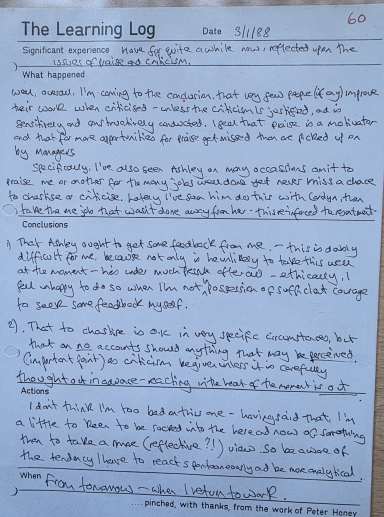 60
The Learning Log Date 3/1/88
Significant experience Have for quite a while now, reflected upon the
issues of praise and criticism.
What happened
Well, overall, I'm coming to the conclusion, that very few people (if any) improve
their work when criticised - unless the criticism is justified, and is
sensitively and constructively conducted. I feel that praise is a motivator
and that far more opportunities for praise get missed than are picked up on
by managers
Specifically, I've also seen Ashley on many occassions omit to
praise me or another for the many jobs well done yet never miss a chance
to chastise or criticise. Lately I've seen him do this with Carolyn, then
take the job that wasn't done away from her - this reinforced the resentment.
Conclusions
1) That Ashley ought to get some feedback from me, - this is doubly
difficult for me, because not only is he unlikely to take this well
at the moment - he's under much after all - ethically, I
feel unhappy to do so when I'm not in possession of sufficient courage
to seek some feedback myself.
2). That to chastise is O.K. in very specific circumstances, but
that on no accounts should anything that may be perceived
(important point) as criticism be given unless it is carefully
thought out in advance - reacting in the heat of the moment is out.
Actions
I don't think I'm too bad on this one - having said that, I'm
a little to keen to be sucked into the here and now of something
than to take a more (reflective ?!) view. So be aware of
the tendency I have to react spontaneously and be more analytical.
When From tomorrow - when I return to work.
....pinched, with thanks, from the work of Peter Honey